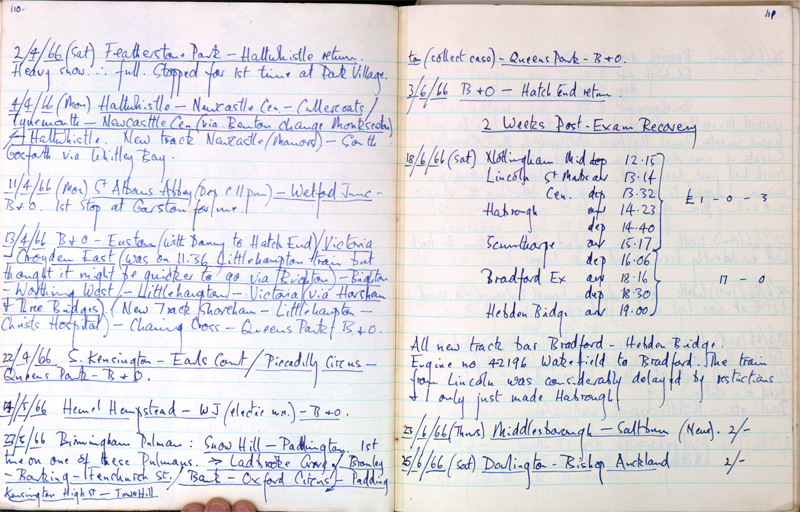 110.
2/4/66 (Sat) Featherstone Park – Haltwhistle return.
Heavy snow ∴ full. Stopped for 1st time at Park Village.
4/4/66 (Mon) Haltwhistle – Newcastle Cen – Cullercoats /
Tynemouth – Newcastle Cen (via Benton change Monkseaton)
– Haltwhistle. New track Newcastle (Manors) – South
Gosforth via Whitley Bay.
11/4/66 (Mon) St Albans Abbey (Dep c.11pm) – Watford Junc –
B+O. 1st Stop at Garston for me.
13/4/66 B+O – Euston (with Danny to Hatch End) / Victoria
– Croydon East (was on 11.36 Littlehampton train but
thought it might be quicker to go via Brighton) – Brighton
– Worthing West – Littlehampton – Victoria (via Horsham
+ Three Bridges). (New Track Shoreham – Littlehampton –
Christs Hospital) – Charing Cross – Queens Park / B+O.
22/4/66 S. Kensington – Earls Court / Piccadilly Circus –
Queens Park – B+O.
/5/66 Hemel Hempstead – WJ (electric m.u.) – B+O.
27/5/66 Birmingham Pulman: Snow Hill – Paddington. 1st
time on one of these Pulmans. → Ladbroke Grove / Bromley
– Barking – Fenchurch St. / Bank – Oxford Circus – Padding
Kensington High St – Tower Hill
111
to (collect case) – Queens Park – B+O.
3/6/66 B+O – Hatch End return.
2 Weeks Post-Exam Recovery
18/6/66 (Sat) Nottingham Mid dep 12.15
Lincoln St Marks arr 13.14
Cen. dep 13.32 £1 – 0 – 3
Habrough arr 14.23
dep 14.40
Scunthorpe arr 15.17
dep 16.06
Bradford Ex arr 18.16 17 – 0
dep 18.30
Hebden Bidge arr 19.00
All new track bar Bradford – Hebden Bidge.
Engine no 42196 Wakefield to Bradford. The train
from Lincoln was considerably delayed by restrictions
+ I only just made Habrough!
23/6/66 (Thurs) Middlesborough – Saltburn (New). 2/-
25/6/66 (Sat) Darlington – Bishop Auckland 2/-